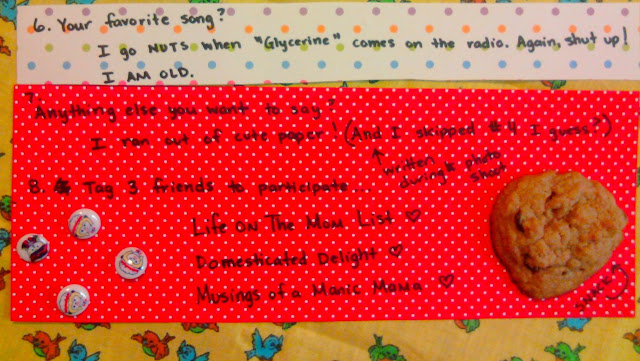 6. Your favorite song?
I go NUTS when "Glycerine" comes on the radio. Again, shut up!
I AM OLD.
7. Anything else you want to say?
I ran out of cute paper! (And I skipped #4 I guess?)
↑ written
during photo
shoot
8. Tag 3 friends to participate...
Life On The Mom List ♡
Domesticated Delight ♡
Musings of a Manic Mama ♡
snack